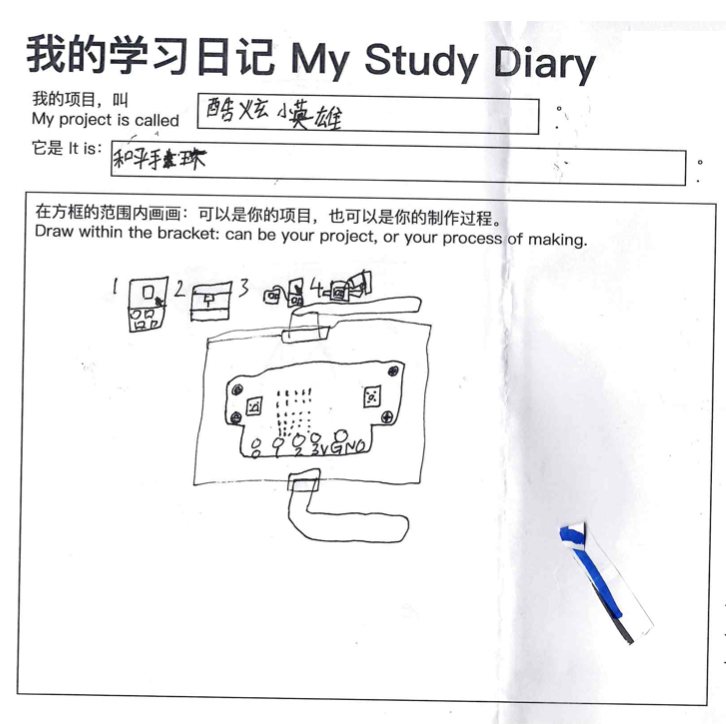 我的学习日记 My Study Diary
我的项目，叫
My project is called
酷炫小英雄
它是 It is:
和平手珠
在方框的范围内画画：可以是你的项目，也可以是你的制作过程。
Draw within the bracket: can be your project, or your process of making.
1 2 3 4
0 1 2 3V GND